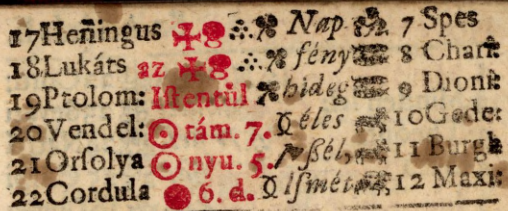 17 Hen̄ingus ✠ Nap 7 Spes
18 Lukáts az ✠ fény 8 Charit:
19 Ptolom: Istentül hideg 9 Dioni:
20 Vendel: ☉ tám. 7. éles 10 Gede:
21 Orsolya ☉ nyu. 5. szél, 11 Burgh
22 Cordula ● 6. d. Ismét 12 Maxi: